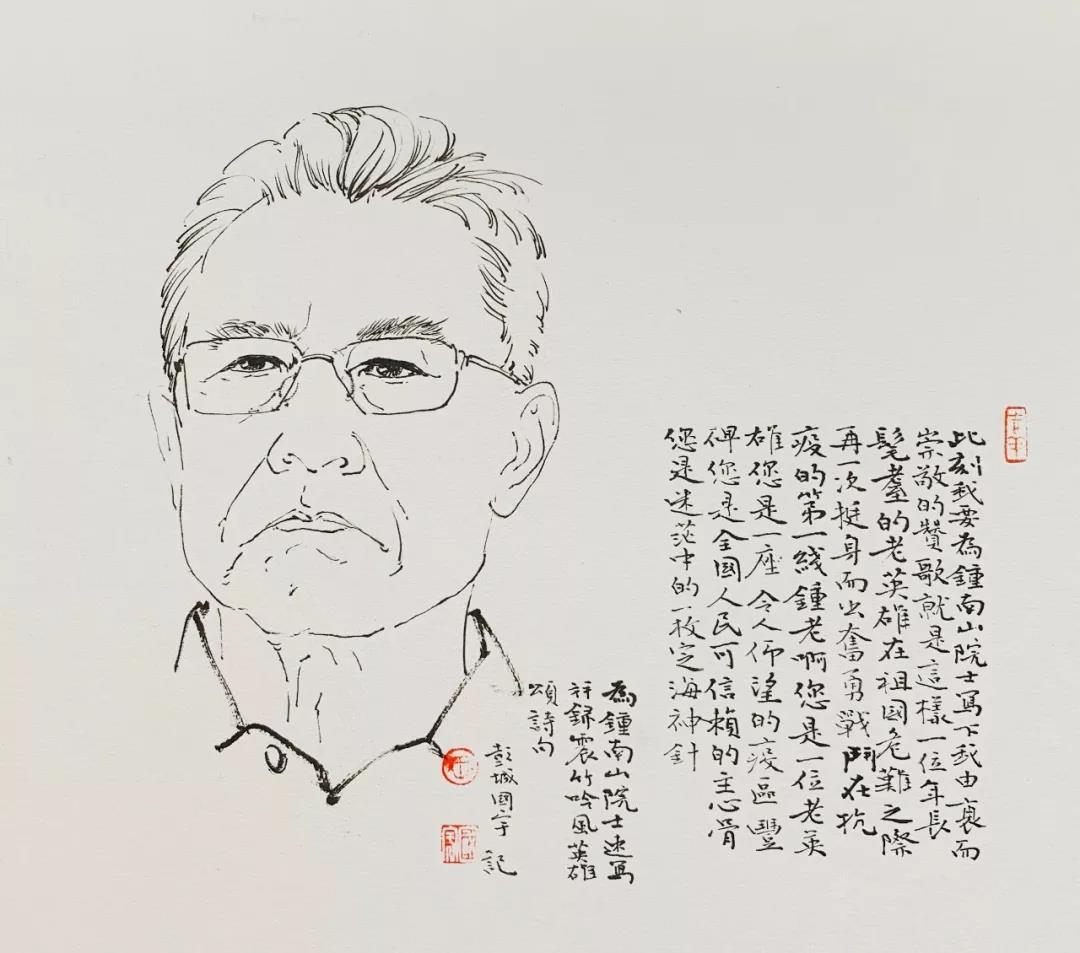 此刻我要為鍾南山院士寫下我由衷而
崇敬的贊歌就是這樣一位年長
髦耋的老英雄在祖國危難之際
再一次挺身而出奮勇戰鬥在抗
疫的第一綫鍾老啊您是一位老英
雄您是一座令人仰望的疫區豐
碑您是全國人民可信賴的主心骨
您是迷茫中的一枚定海神針
為鍾南山院士速寫
并錄震竹吟風英雄
頌詩句
彭城國宇 記